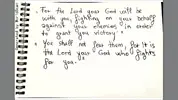 "For the Lord your God will be
with you, fighting on your behalf
against your enemies, in order
to grant you victory."
"You shall not fear them, for it is
the Lord your God who fights
for you.